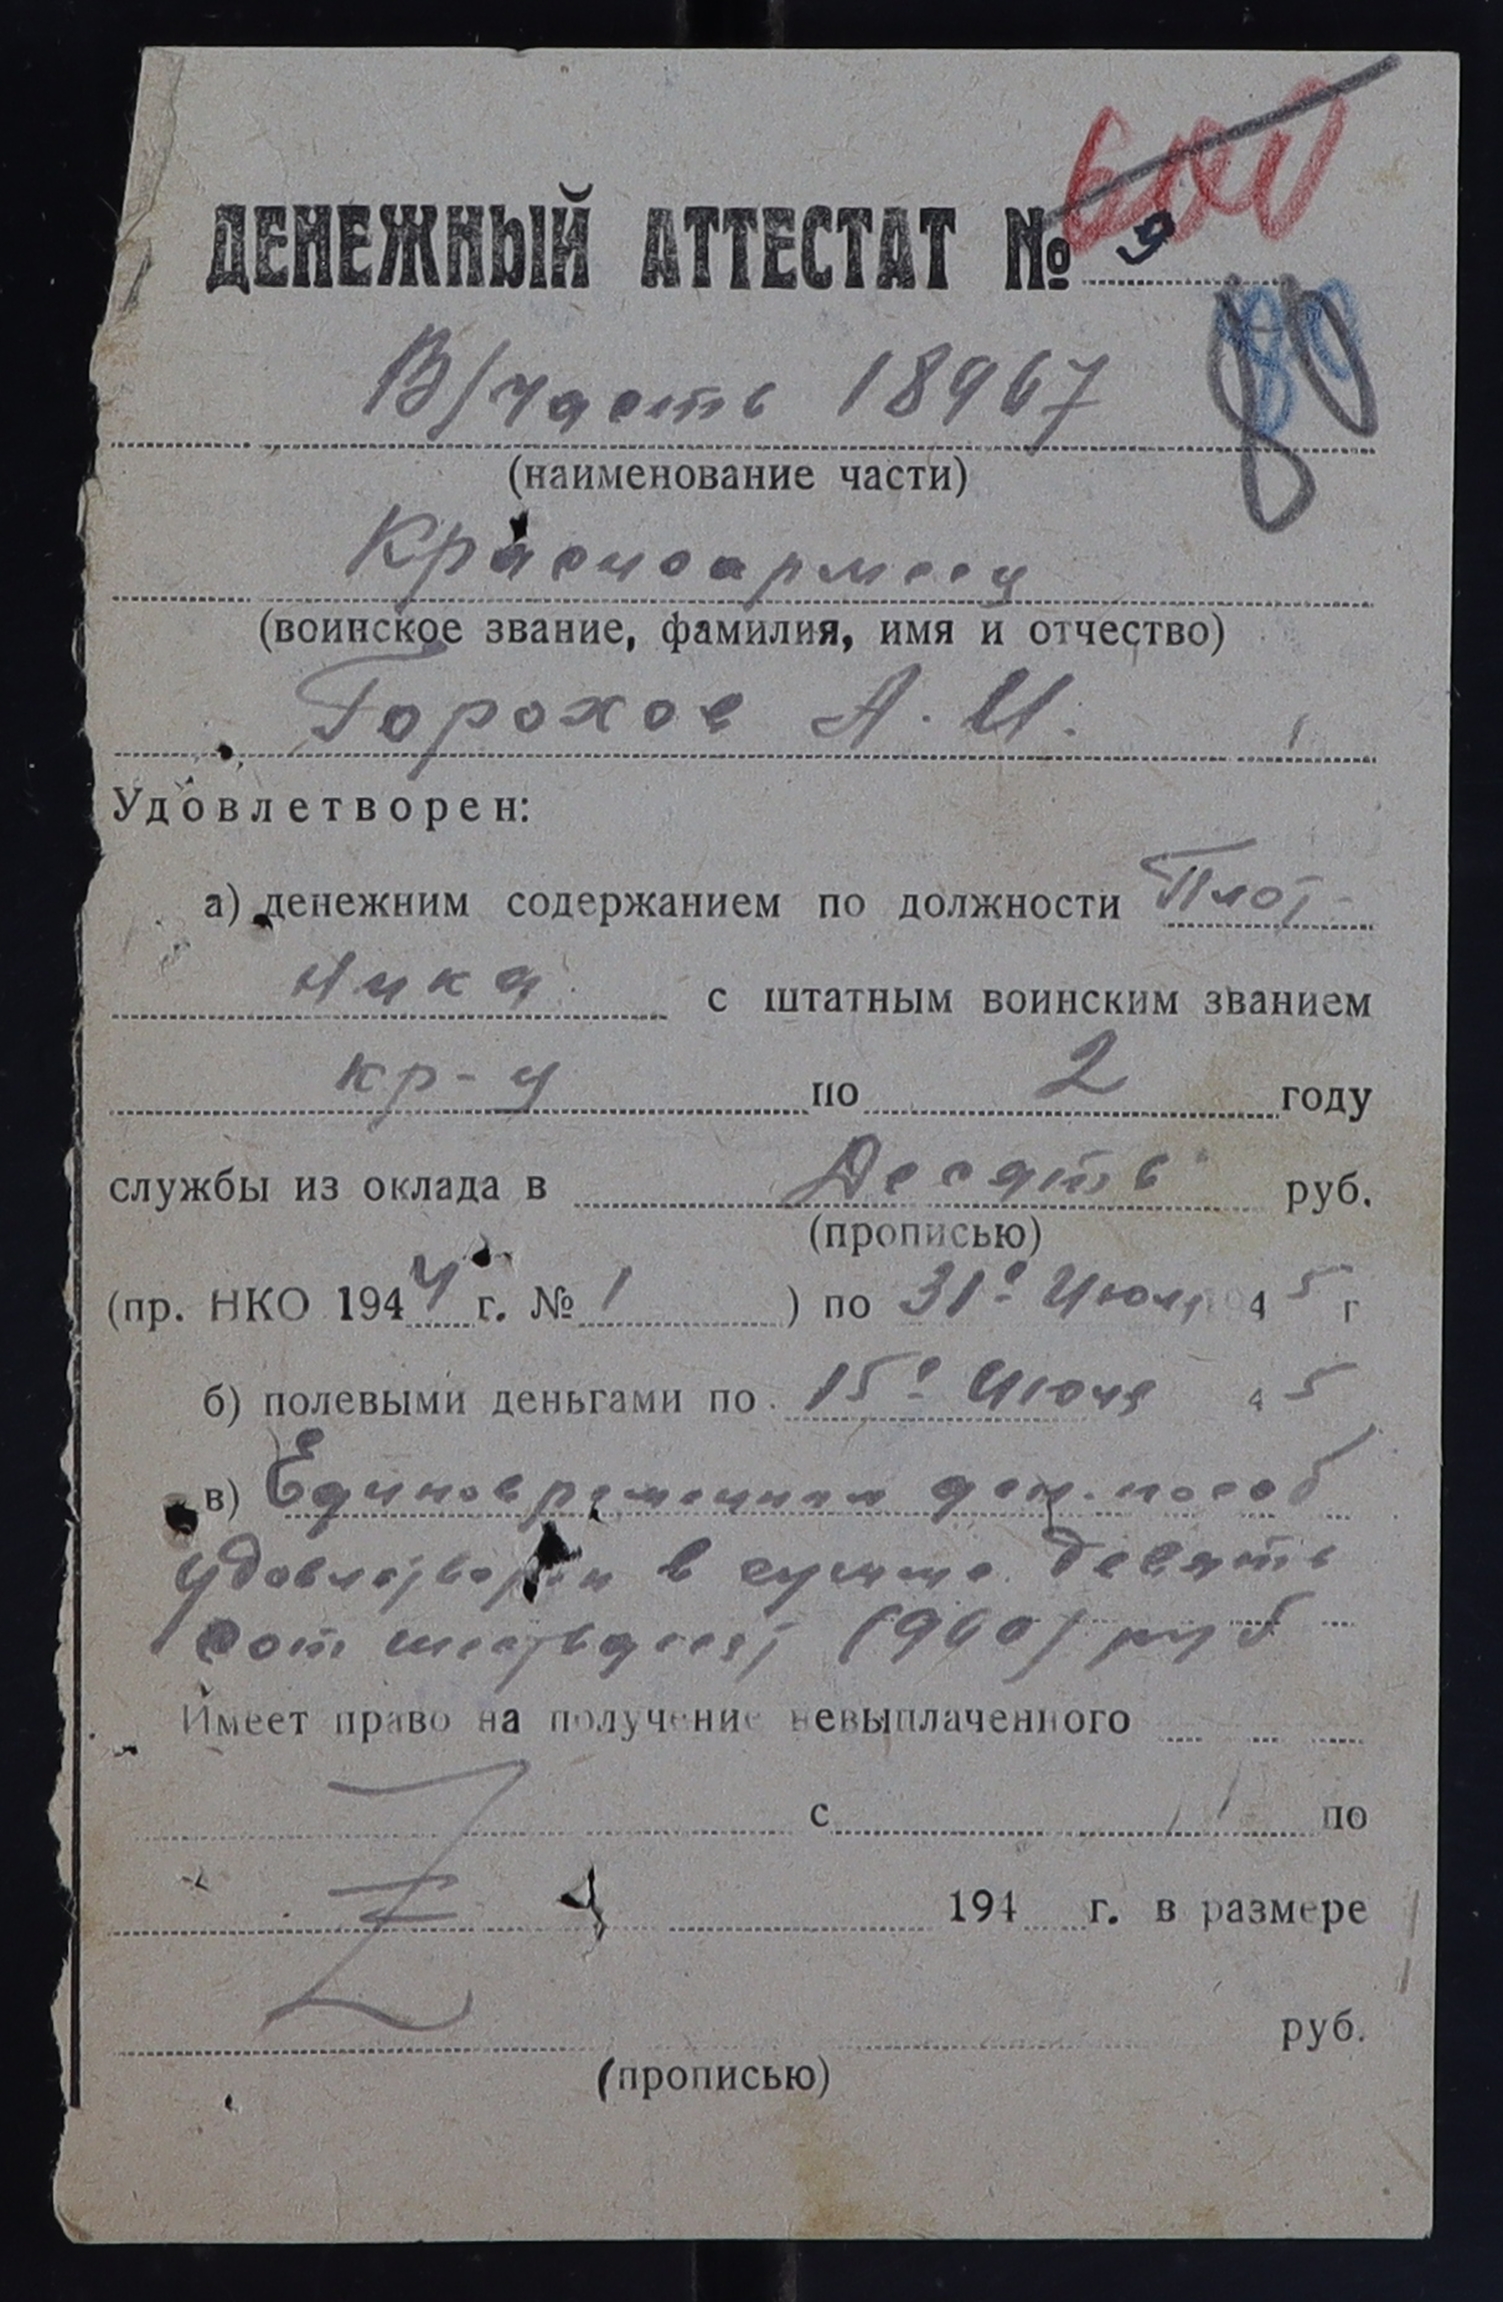 600
ДЕНЕЖНЫЙ АТТЕСТАТ № 9
80
80
В/часть 18967
(наименование части)
Красноармеец
(воинское звание, фамилия, имя и отчество)
Горохов А. И.
Удовлетворен:
а) денежним содержанием по должности Плот-
ника с штатным воинским званием
кр-ц по 2 году
службы из оклада в Десять руб.
(прописью)
(пр. НКО 1944 г. № 1 ) по 31º Июля 194 5 г
б) полевыми деньгами по 15º Июля 4 5
в) Единовременным ден. пособ
удовлетворен в сумме девять
сот шестьдесят (960) руб
Имеет право на получение невыплаченного
с по
194 г. в размере
руб.
(прописью)